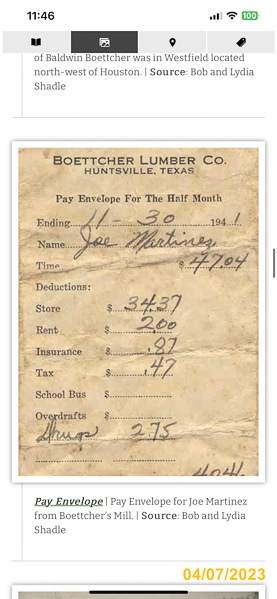 11:46
100
of Baldwin Boettcher was in Westfield located
north-west of Houston. | Source: Bob and Lydia
Shadle
BOETTCHER LUMBER CO.
HUNTSVILLE, TEXAS
Pay Envelope For The Half Month
Ending 11 - 30 1941
Name Joe Martinez
Time $ 47.04
Deductions:
Store $ 34.37
Rent $ 2.00
Insurance $ .87
Tax $ .47
School Bus $
Overdrafts $
Drugs 2.75
40.46
Pay Envelope | Pay Envelope for Joe Martinez
from Boettcher's Mill. | Source: Bob and Lydia
Shadle
04/07/2023